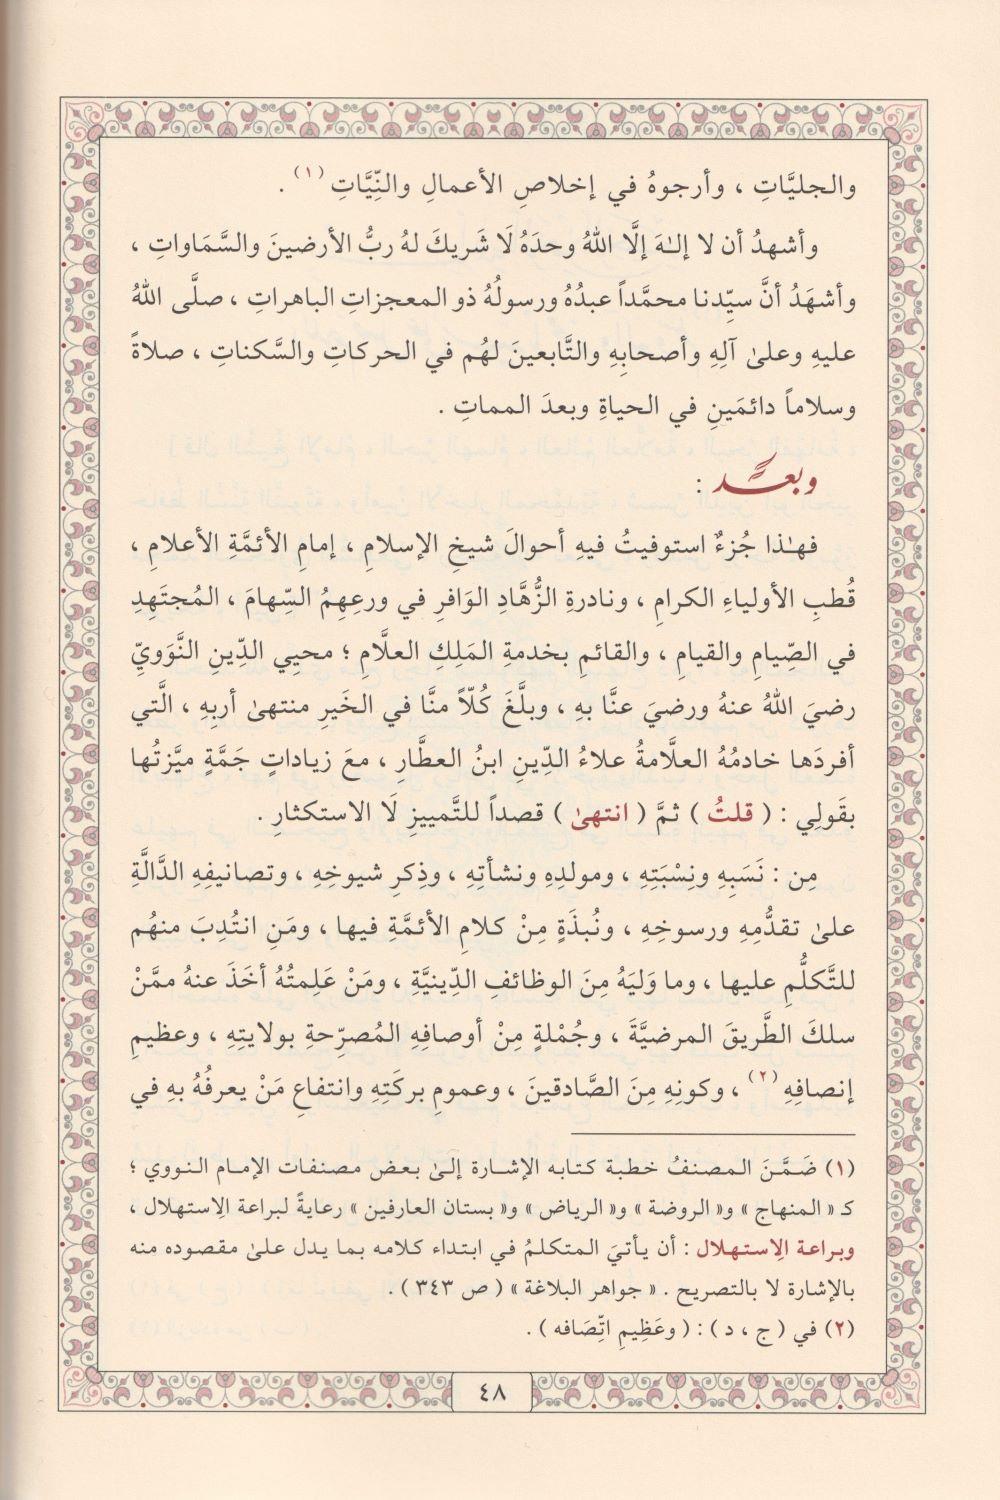 والجليَّاتِ ، وأرجوهُ في إخلاصِ الأعمالِ والنِّيَّاتِ (١) .
وأشهدُ أن لا إلـٰهَ إلَّا اللهُ وحدَهُ لَا شَريكَ لهُ ربُّ الأرضينَ والسَّمَاواتِ ،
وأشهَدُ أنَّ سيِّدنا محمَّداً عبدُهُ ورسولُهُ ذو المعجزاتِ الباهراتِ ، صلَّى اللهُ
عليهِ وعلىٰ آلِهِ وأصحابِهِ والتَّابعينَ لهُم في الحركاتِ والسَّكناتِ ، صلاةً
وسلاماً دائمَينِ في الحياةِ وبعدَ المماتِ .
وبعـــد :
فهـٰذا جُزءٌ استوفيتُ فيهِ أحوالَ شيخِ الإسلامِ ، إمامِ الأئمَّةِ الأعلامِ ،
قُطبِ الأولياءِ الكرامِ ، ونادرةِ الزُّهَّادِ الوَافرِ في ورعِهِمُ السِّهامَ ، المُجتَهِدِ
في الصِّيامِ والقيامِ ، والقائمِ بخدمةِ المَلِكِ العلَّامِ ؛ محيِي الدِّينِ النَّوَوِيِّ
رضيَ اللهُ عنهُ ورضيَ عنَّا بهِ ، وبلَّغَ كُلّاً منَّا في الخَيرِ منتهىٰ أربِهِ ، الَّتي
أفردَها خادمُهُ العلَّامةُ علاءُ الدِّينِ ابنُ العطَّارِ ، معَ زياداتٍ جَمَّةٍ ميَّزتُها
بقَولِي : ( قلتُ ) ثمَّ ( انتهىٰ ) قصداً للتَّمييزِ لَا الاستكثارِ .
مِن : نَسَبِهِ ونِسْبَتِهِ ، ومولدِهِ ونشأتِهِ ، وذِكرِ شيوخِهِ ، وتصانيفِهِ الدَّالَّةِ
علىٰ تقدُّمِهِ ورسوخِهِ ، ونُبذَةٍ مِنْ كلامِ الأئمَّةِ فيها ، ومَنِ انتُدِبَ منهُم
للتَّكلُّمِ عليها ، وما وَليَهُ مِنَ الوظائفِ الدِّينيَّةِ ، ومَنْ عَلِمتُهُ أخَذَ عنهُ ممَّنْ
سلكَ الطَّريقَ المرضيَّةَ ، وجُمْلةٍ مِنْ أوصافِهِ المُصرِّحةِ بولايتِهِ ، وعظيمِ
إنصافِهِ (٢) ، وكونِهِ مِنَ الصَّادقينَ ، وعمومِ بركَتِهِ وانتفاعِ مَنْ يعرفُهُ بهِ في
(١) ضَمَّنَ المصنفُ خطبة كتابه الإشارة إلىٰ بعض مصنفات الإمام النووي ؛
كـ « المنهاج » و« الروضة » و« الرياض » و« بستان العارفين » رعايةً لبراعة الِاستهلال ،
وبراعة الِاستهلال : أن يأتيَ المتكلمُ في ابتداء كلامه بما يدل علىٰ مقصوده منه
بالإشارة لا بالتصريح . « جواهر البلاغة » ( ص ٣٤٣ ) .
(٢) في ( ج ، د ) : ( وعَظِيمِ اتِّصَافه ) .
٤٨